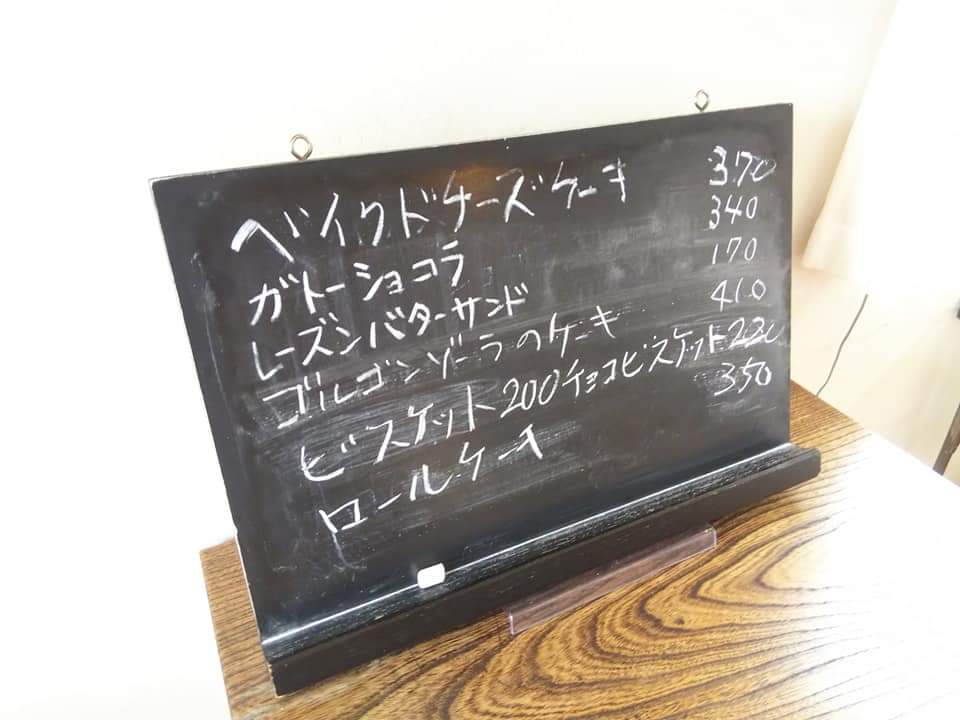 ベイクドチーズケーキ 370
ガトーショコラ 340
レーズンバターサンド 170
ゴルゴンゾーラのケーキ 410
ビスケット200チョコビスケット220
ロールケーキ 350